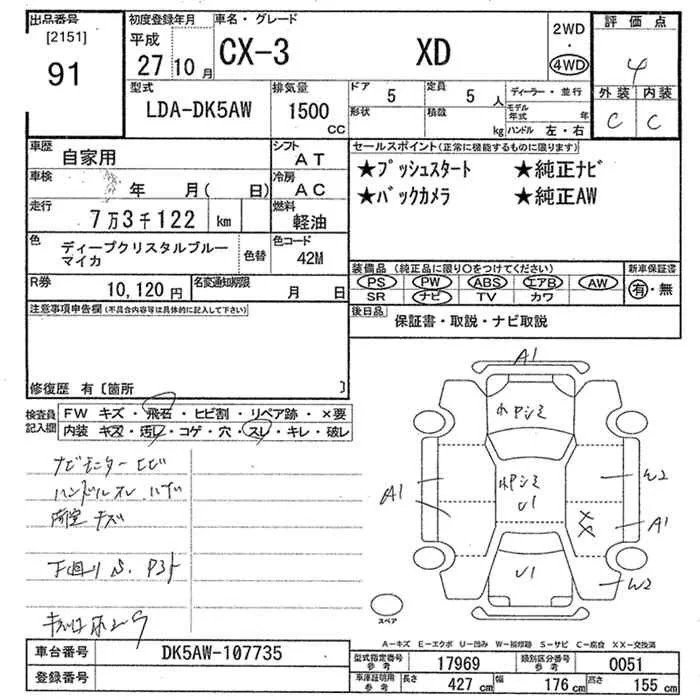 出品番号
[2151]
91
初度登録年月
平成
27 10 月
車名・グレード
CX-3 XD
2WD
・
4WD
評価点
4
外装 内装
C C
型式
LDA-DK5AW
排気量
1500
CC
ドア
5
定員
5 人
形状
積載
kg
ディーラー・並行
モデル年式 年
ハンドル 左・右
車歴
自家用
シフト
AT
車検
年 月( 日)
冷房
AC
走行
7万3千122 km
燃料
軽油
色
ディープクリスタルブルー
マイカ
色替
色コード
42M
R券
10,120 円
名変通知期限
月 日
セールスポイント(正常に機能するものに限ります)
★プッシュスタート ★純正ナビ
★バックカメラ ★純正AW
装備品 (純正品に限り○をつけてください)
PS PW ABS エアB AW
SR ナビ TV カワ
新車保証書
有・無
後日品
保証書・取説・ナビ取説
注意事項申告欄(不具合内容等は具体的に記入して下さい)
修復歴 有〔箇所 〕
検査員
記入欄
FW キズ・飛石・ヒビ割・リペア跡・×要
内装 キズ・汚レ・コゲ・穴・スレ・キレ・破レ
ナビモニター ヒビ
ハンドルスレ
キズ
下廻りS.
A1
ホPシミ
A1
ホPシミ
U1
W2
XX
A1
U1
W2
スペア
A-キズ E-エクボ U-凹み W-補修跡 S-サビ C-腐食 XX-交換済
車台番号
DK5AW-107735
登録番号
型式指定番号
参考
17969
類別区分番号
参考
0051
車庫証明用
参考
長さ
427 cm
幅
176 cm
高さ
155 cm